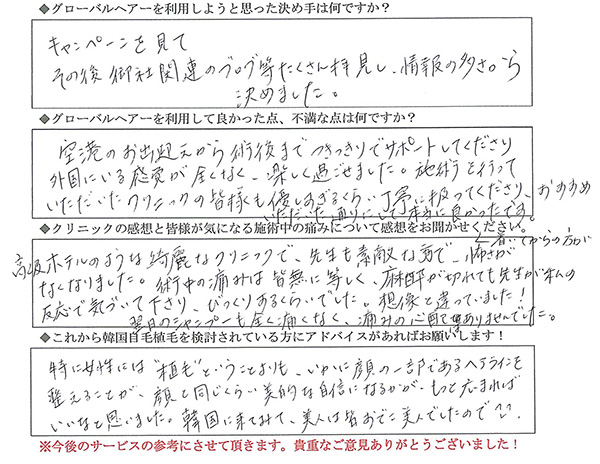 ◆グローバルヘアーを利用しようと思った決め手は何ですか？
キャンペーンを見て
その後御社関連のブログ等たくさん拝見し、情報の多さから
決めました。
◆グローバルヘアーを利用して良かった点、不満な点は何ですか？
空港のお出迎えから術後までつきっきりでサポートしてくださり
外国にいる感覚が全くなく、楽しく過ごせました。施術を行って
いただいたクリニックの皆様も優しすぎるくらい丁寧に扱ってくださり、おすすめ
いただいた通りにして本当に良かったです。
◆クリニックの感想と皆様が気になる施術中の痛みについて感想をお聞かせください。
着いてからの方が
高級ホテルのような綺麗なクリニックで、先生も素敵な方で、怖さが
なくなりました。術中の痛みは皆無に等しく、麻酔が切れても先生が私の
反応で気づいて下さり、びっくりするくらいでした。想像と違っていました！
翌日のシャンプーも全く痛くなく、痛みの心配はありませんでした。
◆これから韓国自毛植毛を検討されている方にアドバイスがあればお願いします！
特に女性には"植毛"ということよりも、いかに顔の一部であるヘアラインを
整えることが、顔と同じくらい美的な自信になるかが、もっと広まれば
いいなと思いました。韓国に来てみて、美人は皆おでこ美人でしたので
※今後のサービスの参考にさせて頂きます。貴重なご意見ありがとうございました！